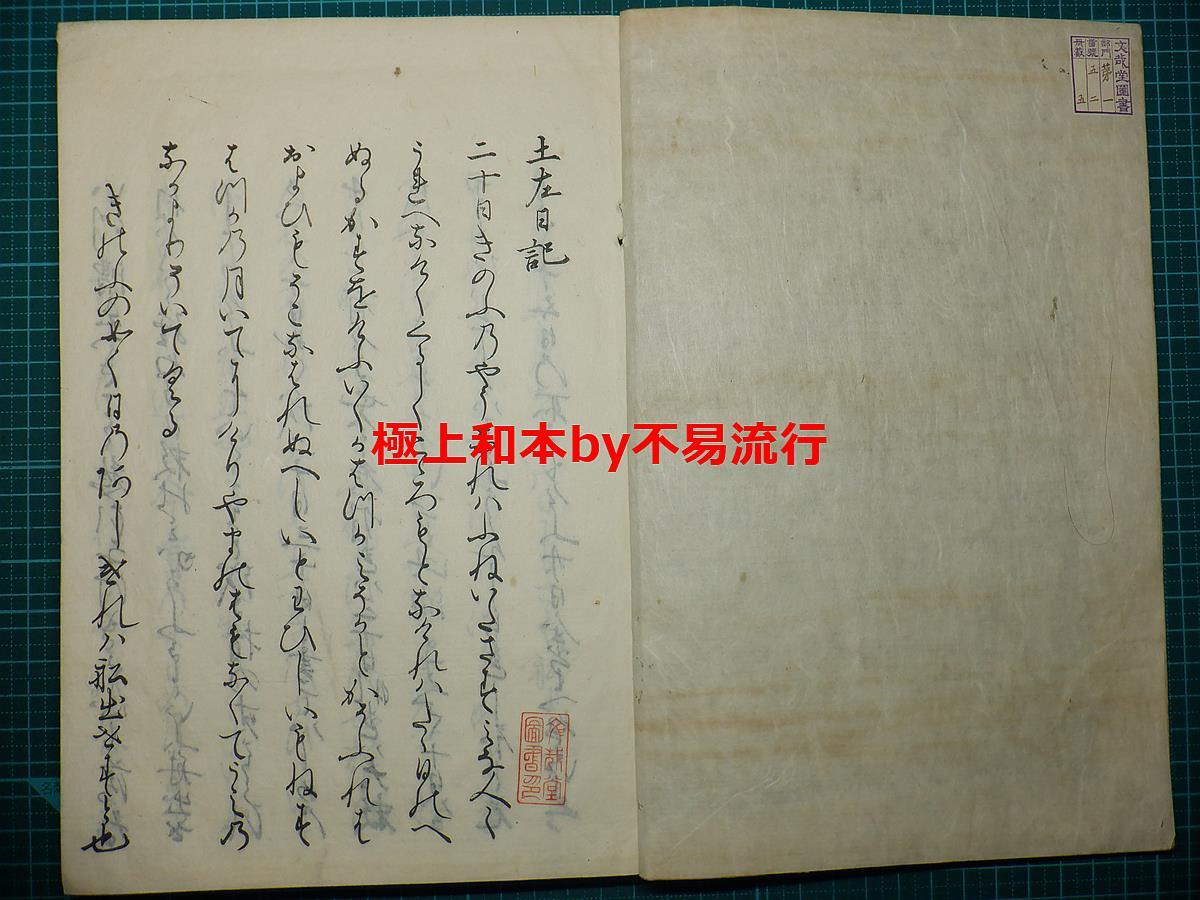 文哉堂圖書
部門 第一
番號 五二
冊數 五
土左日記
二十日きのふのやうなれハふねいたさすみな人〱
うれへなけくくるしくこゝろもとなけれハたゝ日のへ
ぬるかすをけふいくかはつかみそかとかそふれは
およひもそこなはれぬへしいとわひしいもねす
はつかの月いてにけりやまのはもなくてうみの
なかよりそいてくる
きのふの如く日のあしけれハ船出せすと也
文哉堂
圖書印
極上和本by不易流行